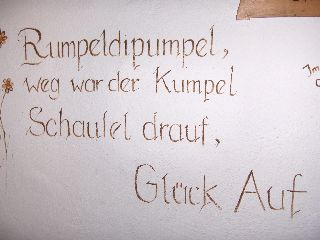 Rumpeldipumpel,
weg war der Kumpel
Schaufel drauf,
Glück Auf